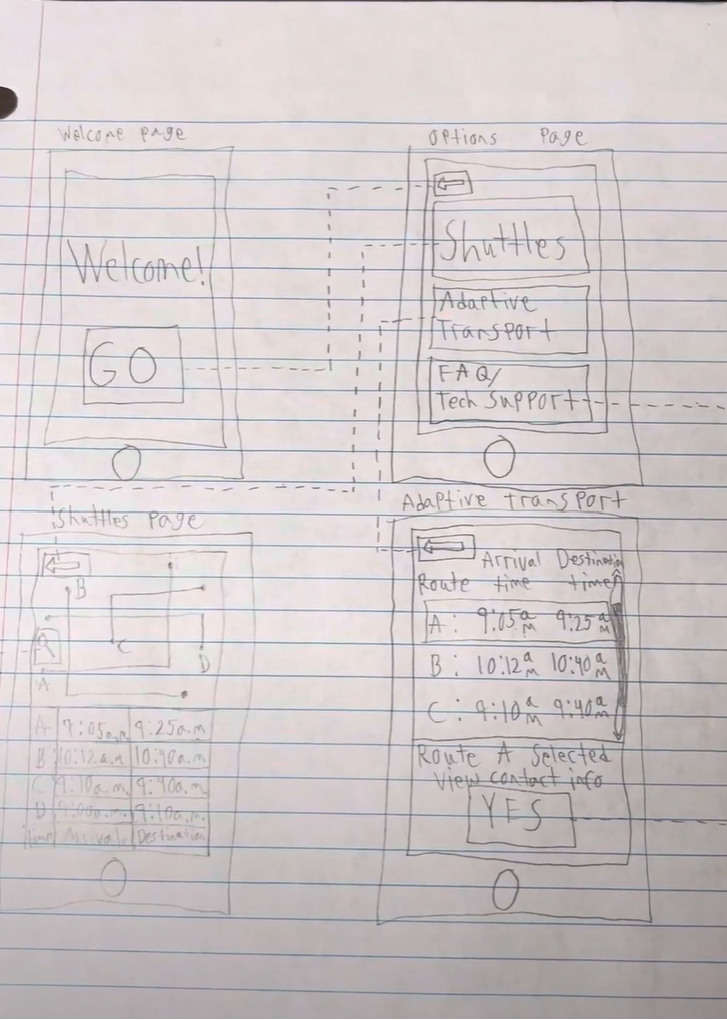 Welcome page
Welcome!
GO
Options Page
Shuttles
Adaptive
Transport
FAQ/
Tech Support
Shuttles Page
B
C
D
A
A 9:05a.m 9:25a.m
B 10:12a.m 10:40a.m
C 9:10a.m. 9:40a.m
D 9:00a.m. 9:10a.m.
Arrival Destination
Adaptive transport
Arrival Destination
Route time time
A: 9:05am 9:25am
B: 10:12am 10:40am
C: 9:10am 9:40am
Route A Selected
View contact info
YES